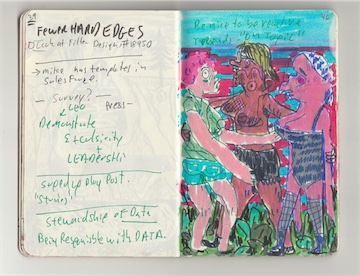 39
Fewer HARD EDGES
Look at Filter Design #18950
→ mike has templates in
Sales Forge.
— Survey? —
CEO
Press —
Demonstrate
Exclusivity
+
LEADERSHIP
Speed up Play Post.
"Stories"
Stewardship of Data
Being Responsible with DATA.
40
Be nice to be reactive
towards "Big Topic"